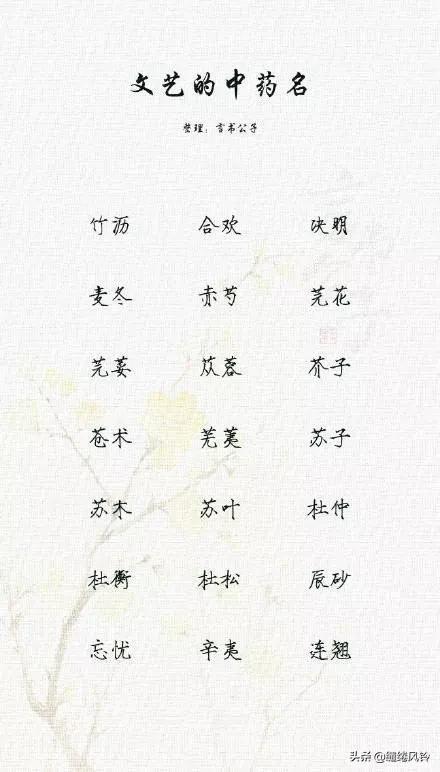 文艺的中药名
整理：言书公子
竹沥 合欢 决明
麦冬 赤芍 芫花
芫荽 苁蓉 芥子
苍术 芜荑 苏子
苏木 苏叶 杜仲
杜衡 杜松 辰砂
忘忧 辛夷 连翘
头条@缱绻风铃